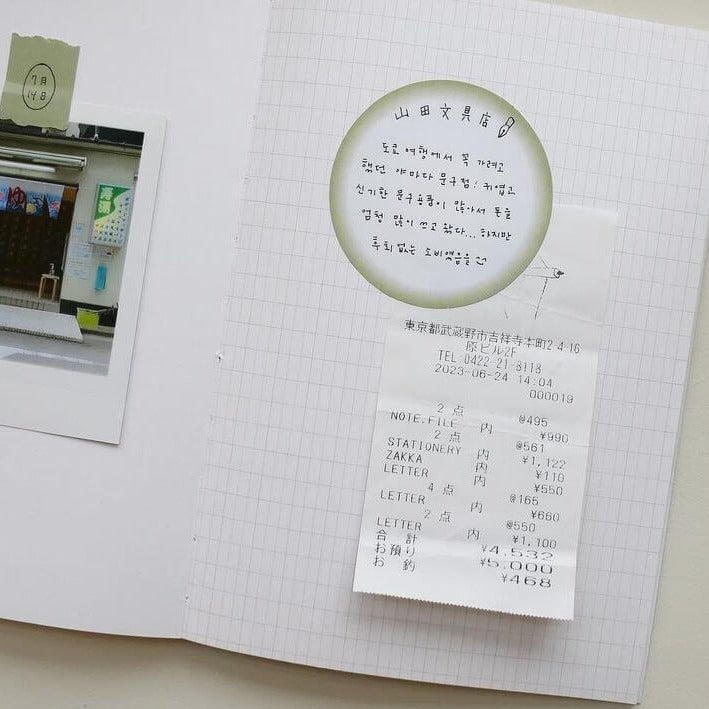 7月
14日
ゆ
山田文具店
도쿄 여행에서 꼭 가려고
했던 야마다 문구점! 귀엽고
신기한 문구용품이 많아서 돈을
엄청 많이 쓰고 왔다... 하지만
후회없는 소비였음을
東京都武蔵野市吉祥寺本町2-4-16
原ビル2F
TEL 0422-21-8118
2023-06-24 14:04
000019
2点 @495
NOTE.FILE 内 ¥990
2点 @561
STATIONERY 内 ¥1,122
ZAKKA 内 ¥110
LETTER 内 ¥550
4点 @165
LETTER 内 ¥660
2点 @550
LETTER 内 ¥1,100
合計 ¥4,532
お預り ¥5,000
お釣 ¥468